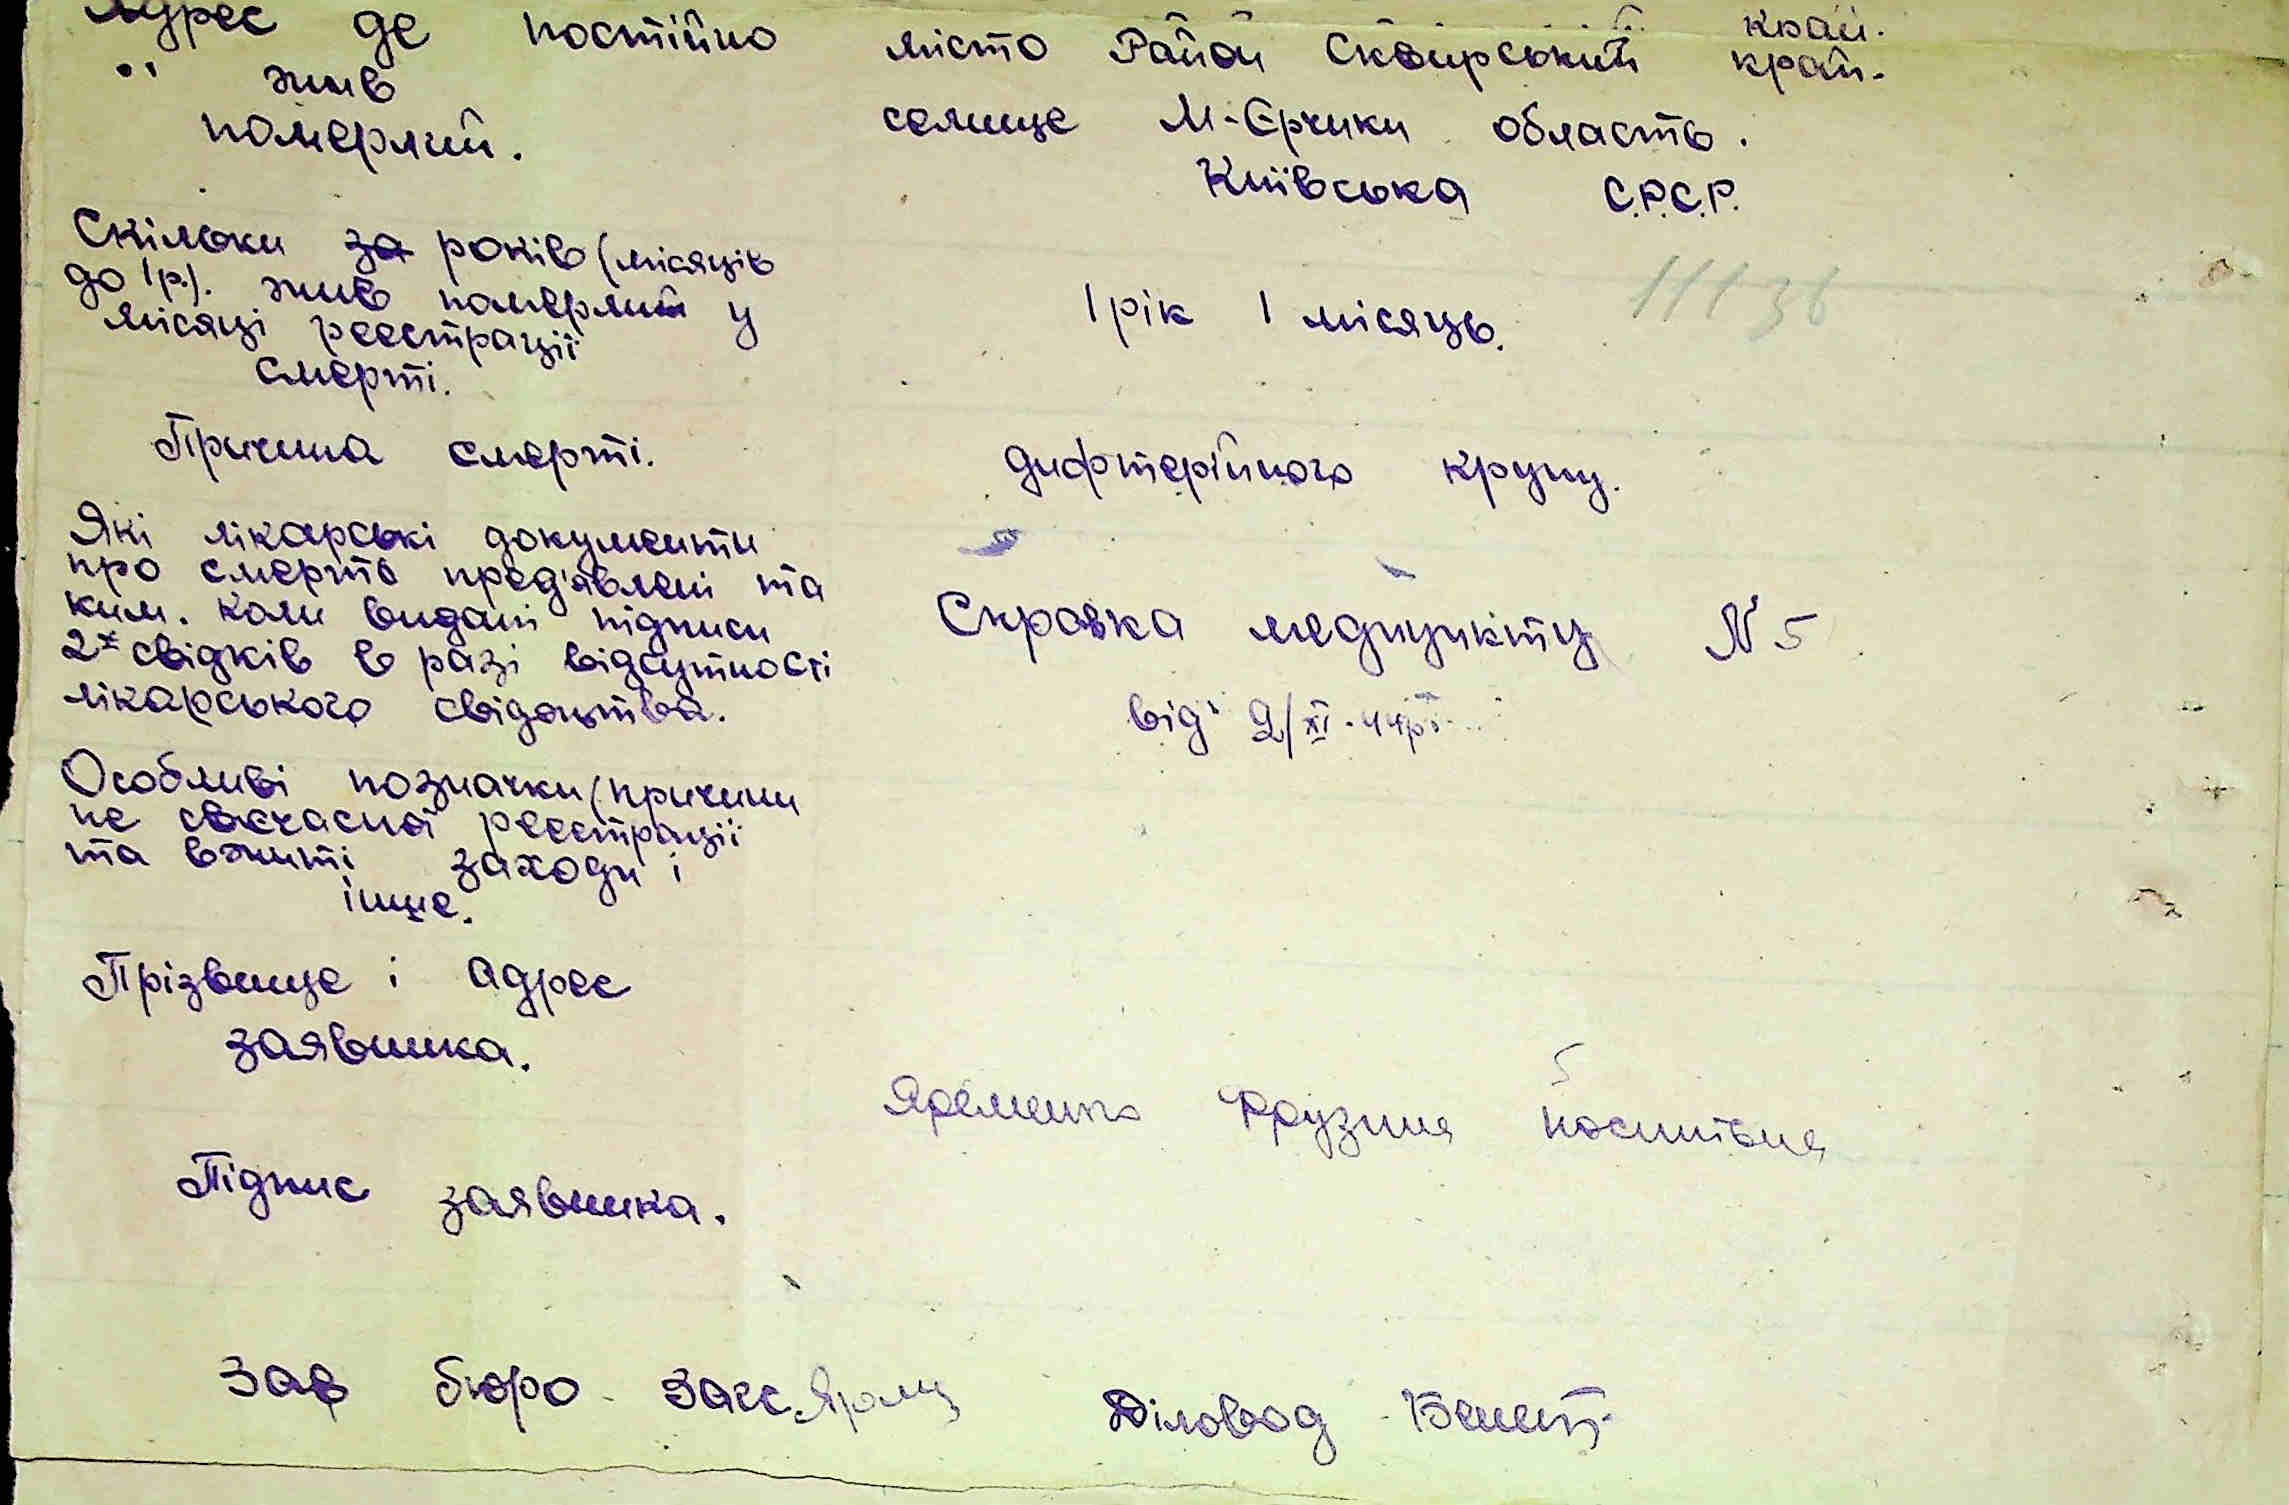 Адрес де постійно
жив
померлий.
край.
місто Район Сквирський край.
селище М-Єрчики область.
Київська С.Р.С.Р.
Скільки за років (місяців
до 1р.). жив померлий у
місяці реєстрації
смерті.
1 рік 1 місяць.
Причина смерті.
дифтерійного крупу.
Які лікарські документи
про смерть пред'явлені та
ким. коли видані підписи
2х свідків в разі відсутності
лікарського свідоцтва.
Справка медпункту N 5
від 2/XI-44р
Особливі позначки (причини
не своєчасної реєстрації
та вжиті заходи і
інше.
Прізвище і адрес
заявника.
Яременко Фрузина
Підпис заявника.
Зав бюро Загс
Діловод